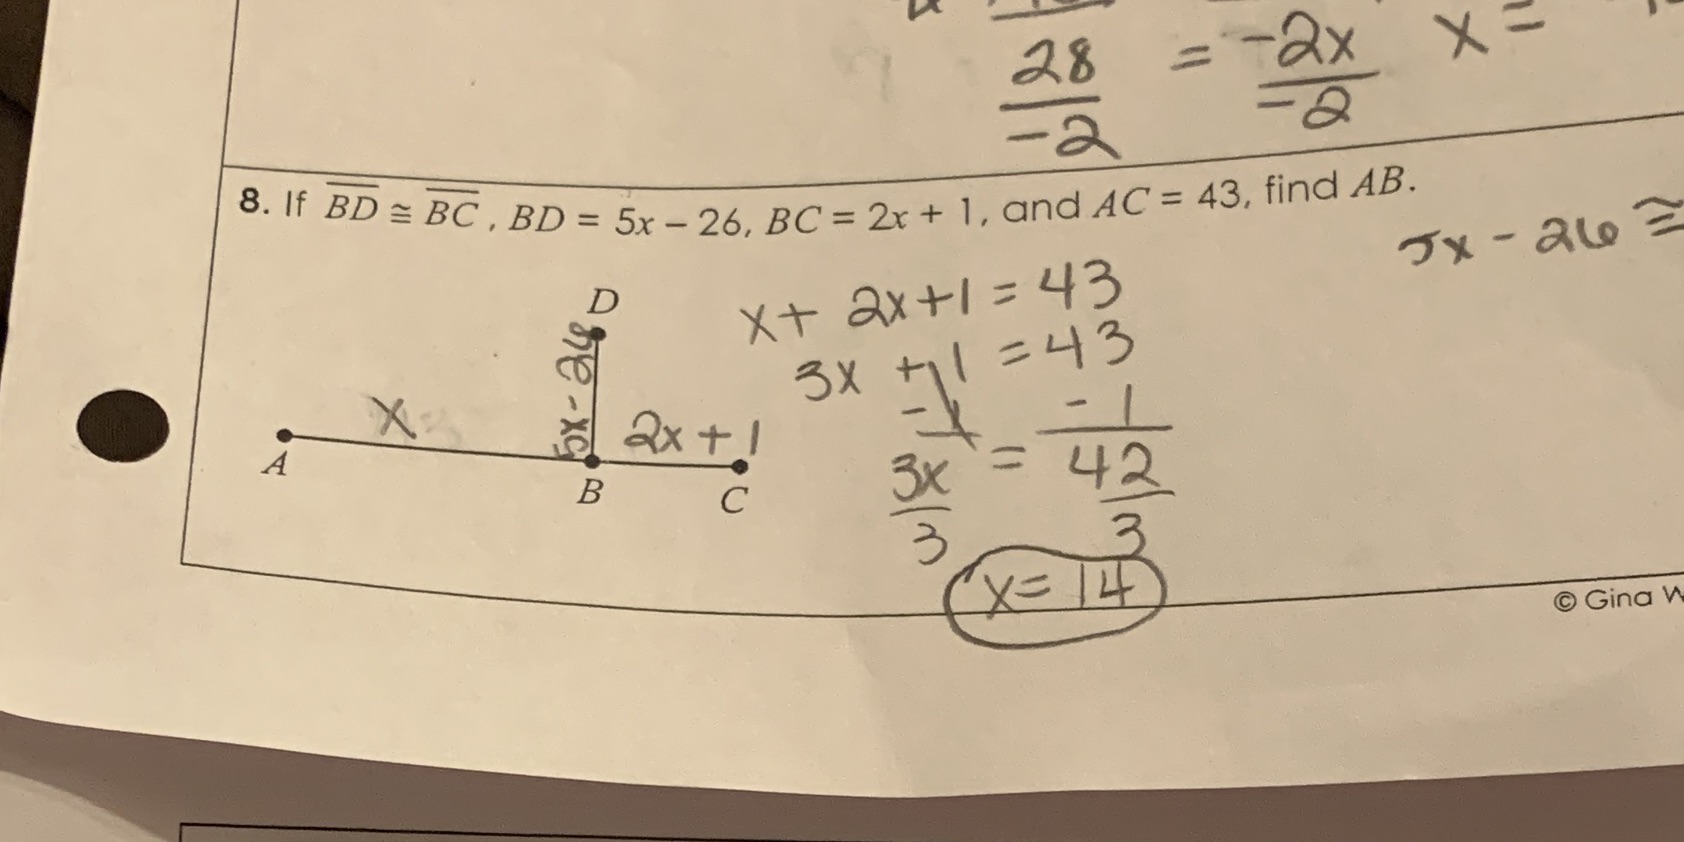 28 = -2x x =
-2 -2
8. If BD ≅ BC, BD = 5x – 26, BC = 2x + 1, and AC = 43, find AB.
5x - 26 ≅
x + 2x + 1 = 43
3x + 1 = 43
- 1 - 1
3x = 42
3 3
x = 14
D
5x - 26
x
2x + 1
A
B
C
© Gina W